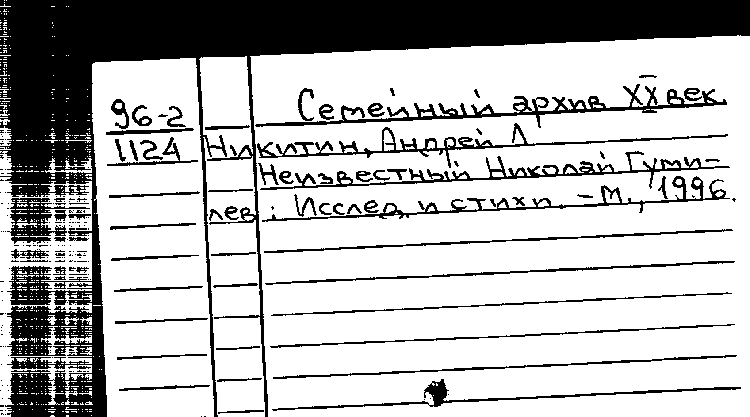 96-2 Семейный архив XX век.
1124 Никитин, Андрей Л
Неизвестный Николай Гуми-
лев: Исслед. и стихи. - М., 1996.